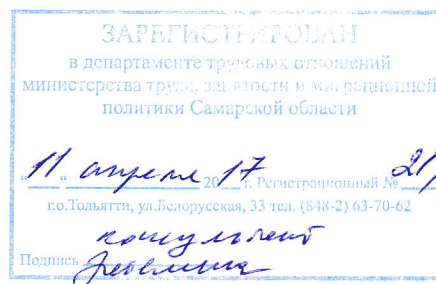 ЗАРЕГИСТРИРОВАН
в департаменте трудовых отношений
министерства труда, занятости и миграционной
политики Самарской области
"11" апреля 2017 г. Регистрационный № 21/
г.о.Тольятти, ул.Белорусская, 33 тел. (848-2) 63-70-62
консультант
Подпись